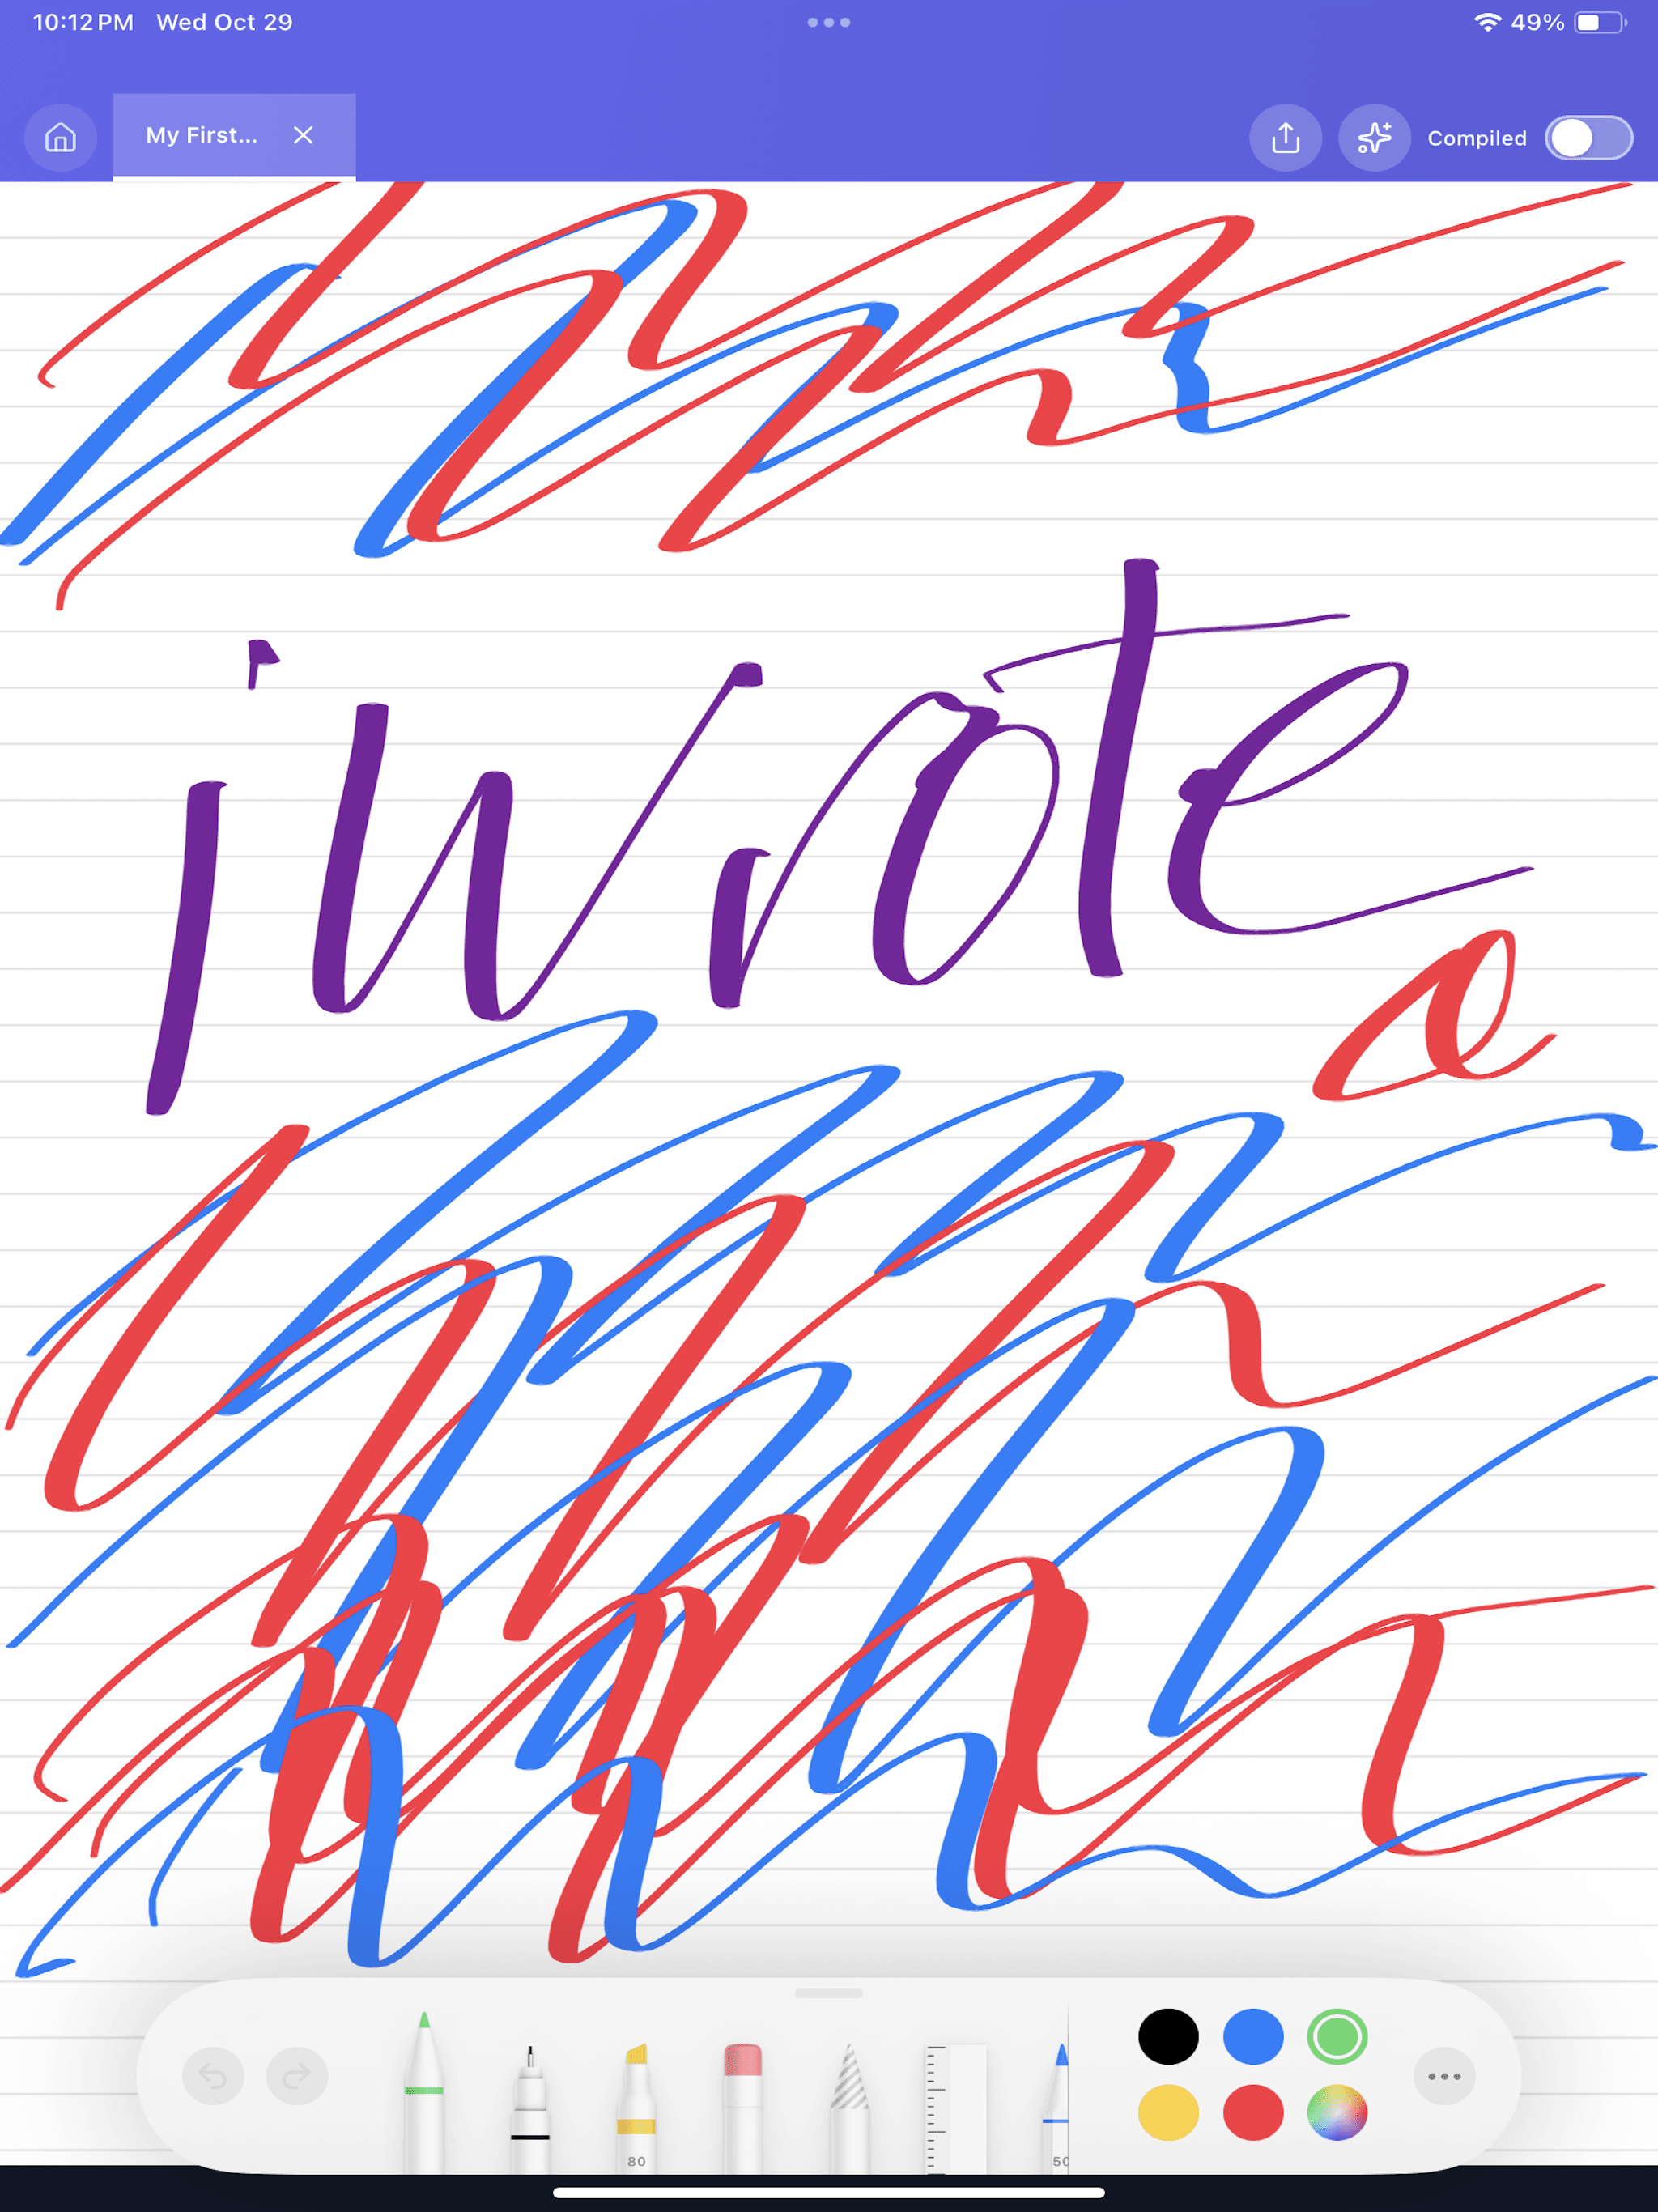 10:12 PM Wed Oct 29 49%
My First... Compiled
i wrote
80 50